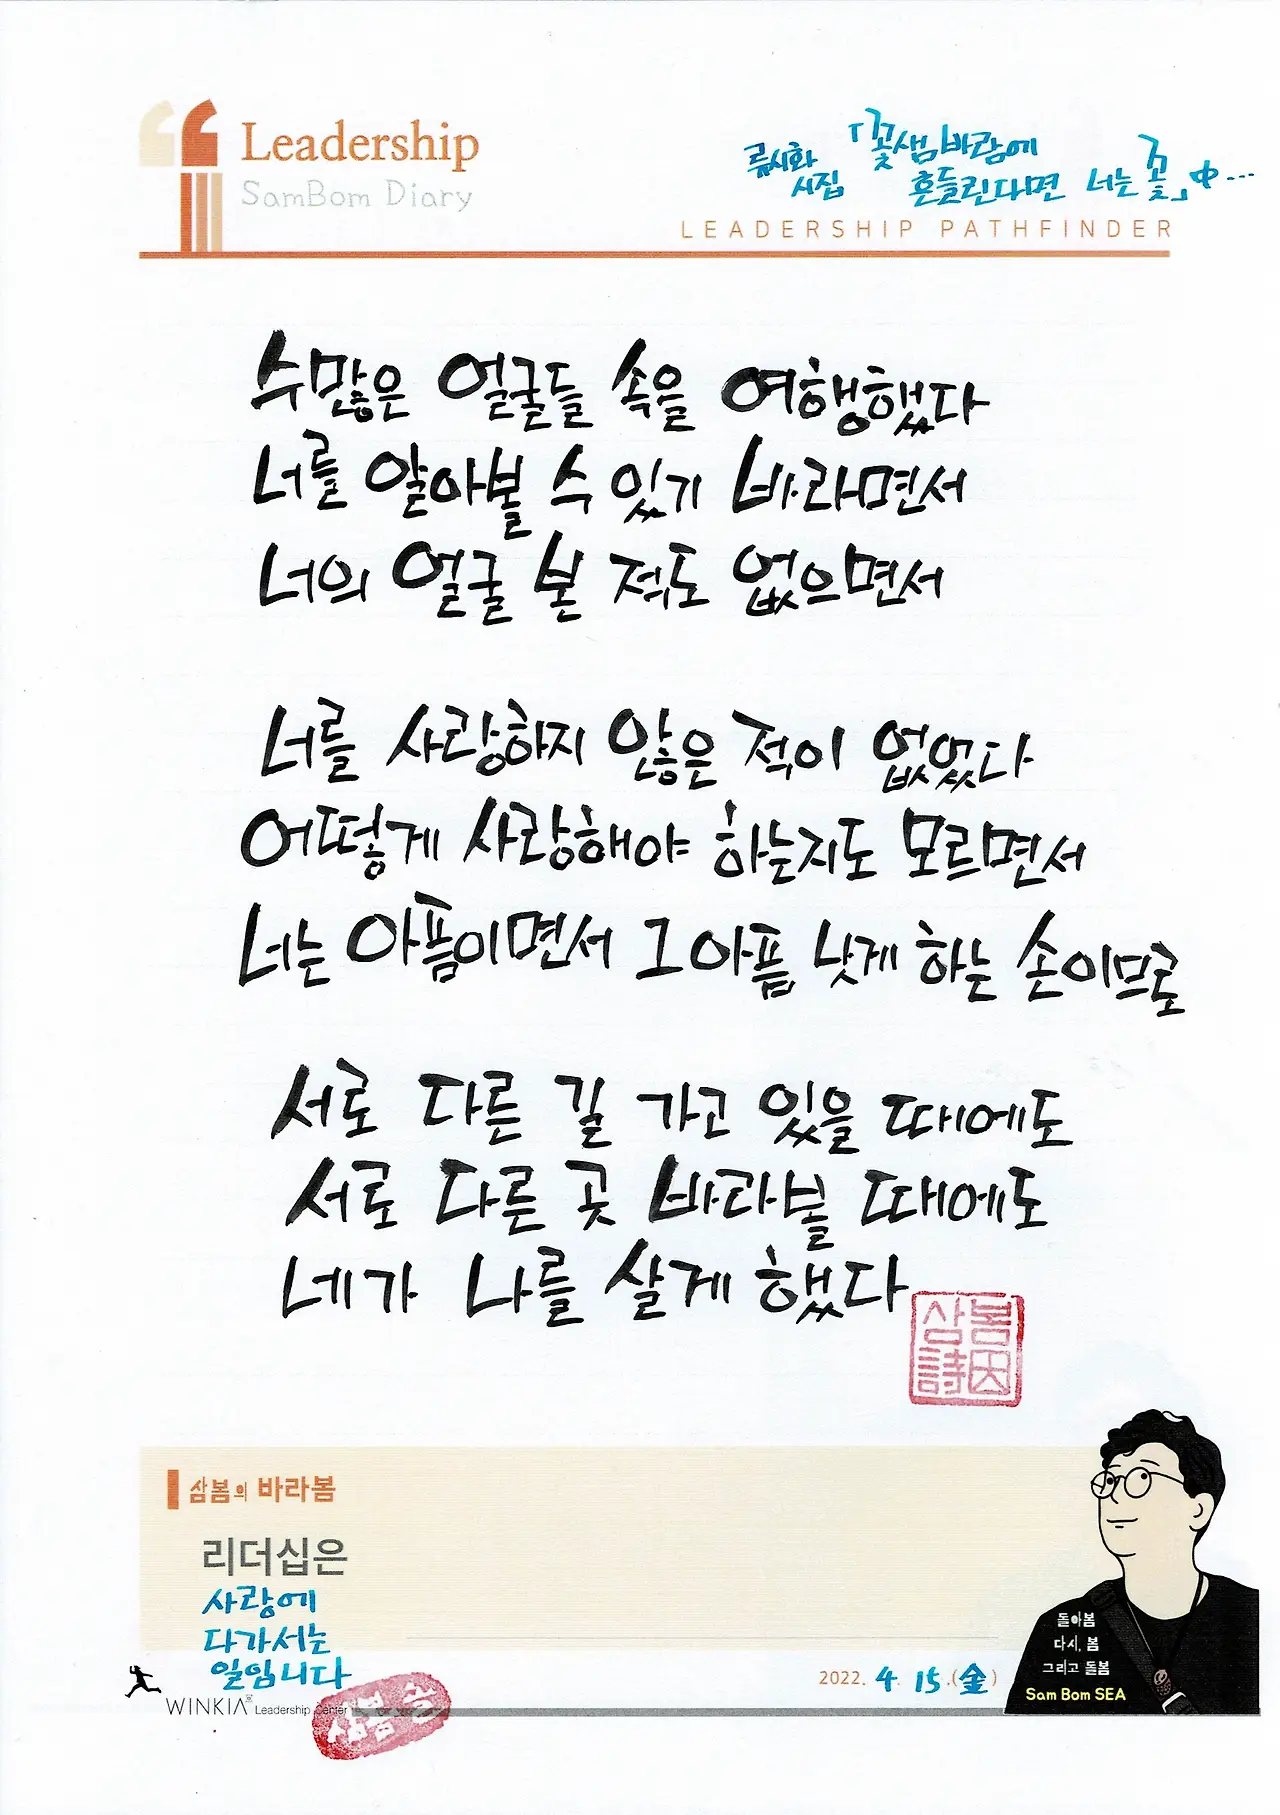 Leadership
SamBom Diary
류시화 시집 「꽃샘바람에 흔들린다면 너는 꽃」 中...
LEADERSHIP PATHFINDER
수많은 얼굴들 속을 여행했다
너를 알아볼 수 있기 바라면서
너의 얼굴 본 적도 없으면서
너를 사랑하지 않은 적이 없었다
어떻게 사랑해야 하는지도 모르면서
너는 아픔이면서 그 아픔 낫게 하는 손이므로
서로 다른 길 가고 있을 때에도
서로 다른 곳 바라볼 때에도
네가 나를 살게 했다
삼봄
詩因
삼봄의 바라봄
리더십은
사랑에
다가서는
일입니다
돌아봄
다시, 봄
그리고 돌봄
Sam Bom SEA
2022. 4. 15.(金)
WINKIA Leadership Center